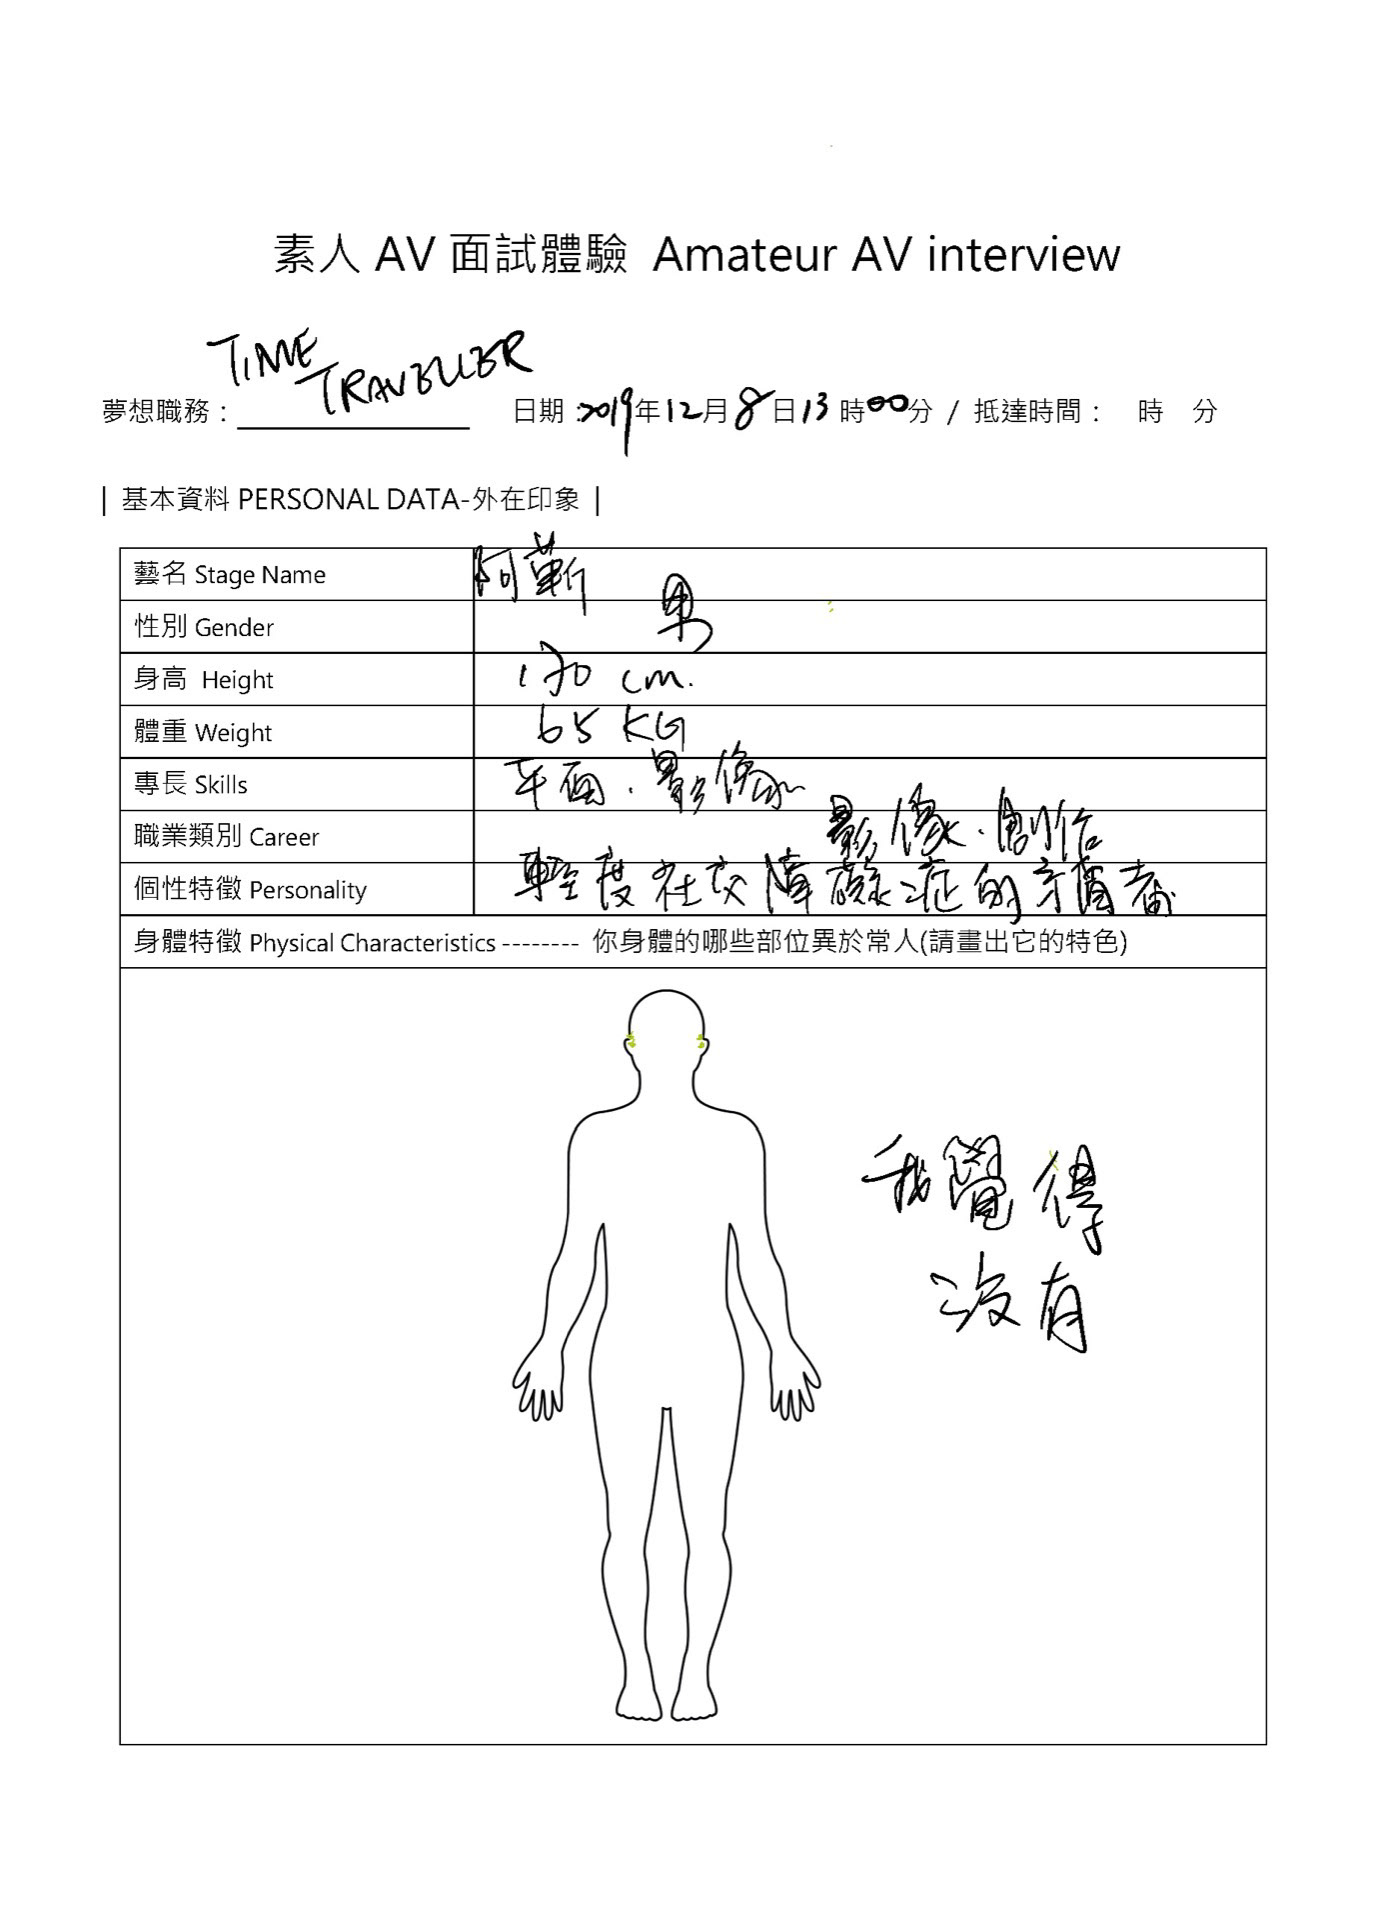 素人 AV 面試體驗 Amateur AV interview
TIME
TRAVELLER
夢想職務：
日期：2019年12月8日13時00分 / 抵達時間： 時 分
| 基本資料 PERSONAL DATA-外在印象 |
藝名 Stage Name 阿蕲
性別 Gender 男
身高 Height 170 cm.
體重 Weight 65 KG
專長 Skills 平面．影像
職業類別 Career 影像．創作
個性特徵 Personality 輕度社交障礙症的
身體特徵 Physical Characteristics -------- 你身體的哪些部位異於常人(請畫出它的特色)
我覺得
沒有